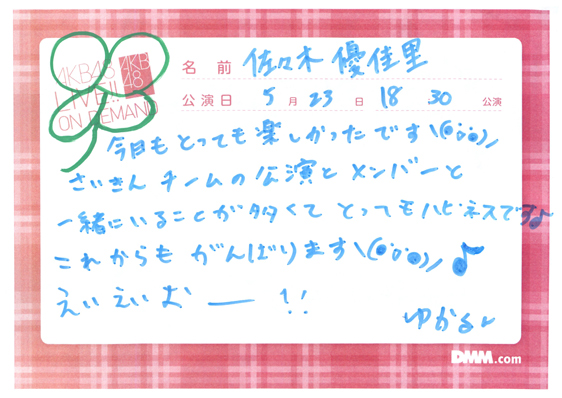 AKB48
LIVE!!
ON DEMAND
AKB
48
名前 佐々木 優佳里
公演日 5月23日 18 30 公演
今日もとっても楽しかったです\(◉¨◉)/
さいきん チームの公演と メンバーと
一緒にいることが多くて とってもハピネスです♪
これからも がんばります\(◉¨◉)/ ♪
えいえいおー !!
ゆかるん
DMM.com